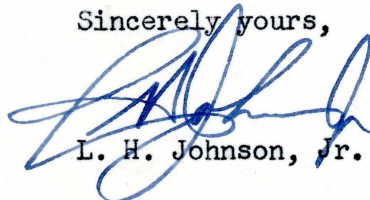 Sincerely yours,
L. H. Johnson, Jr.